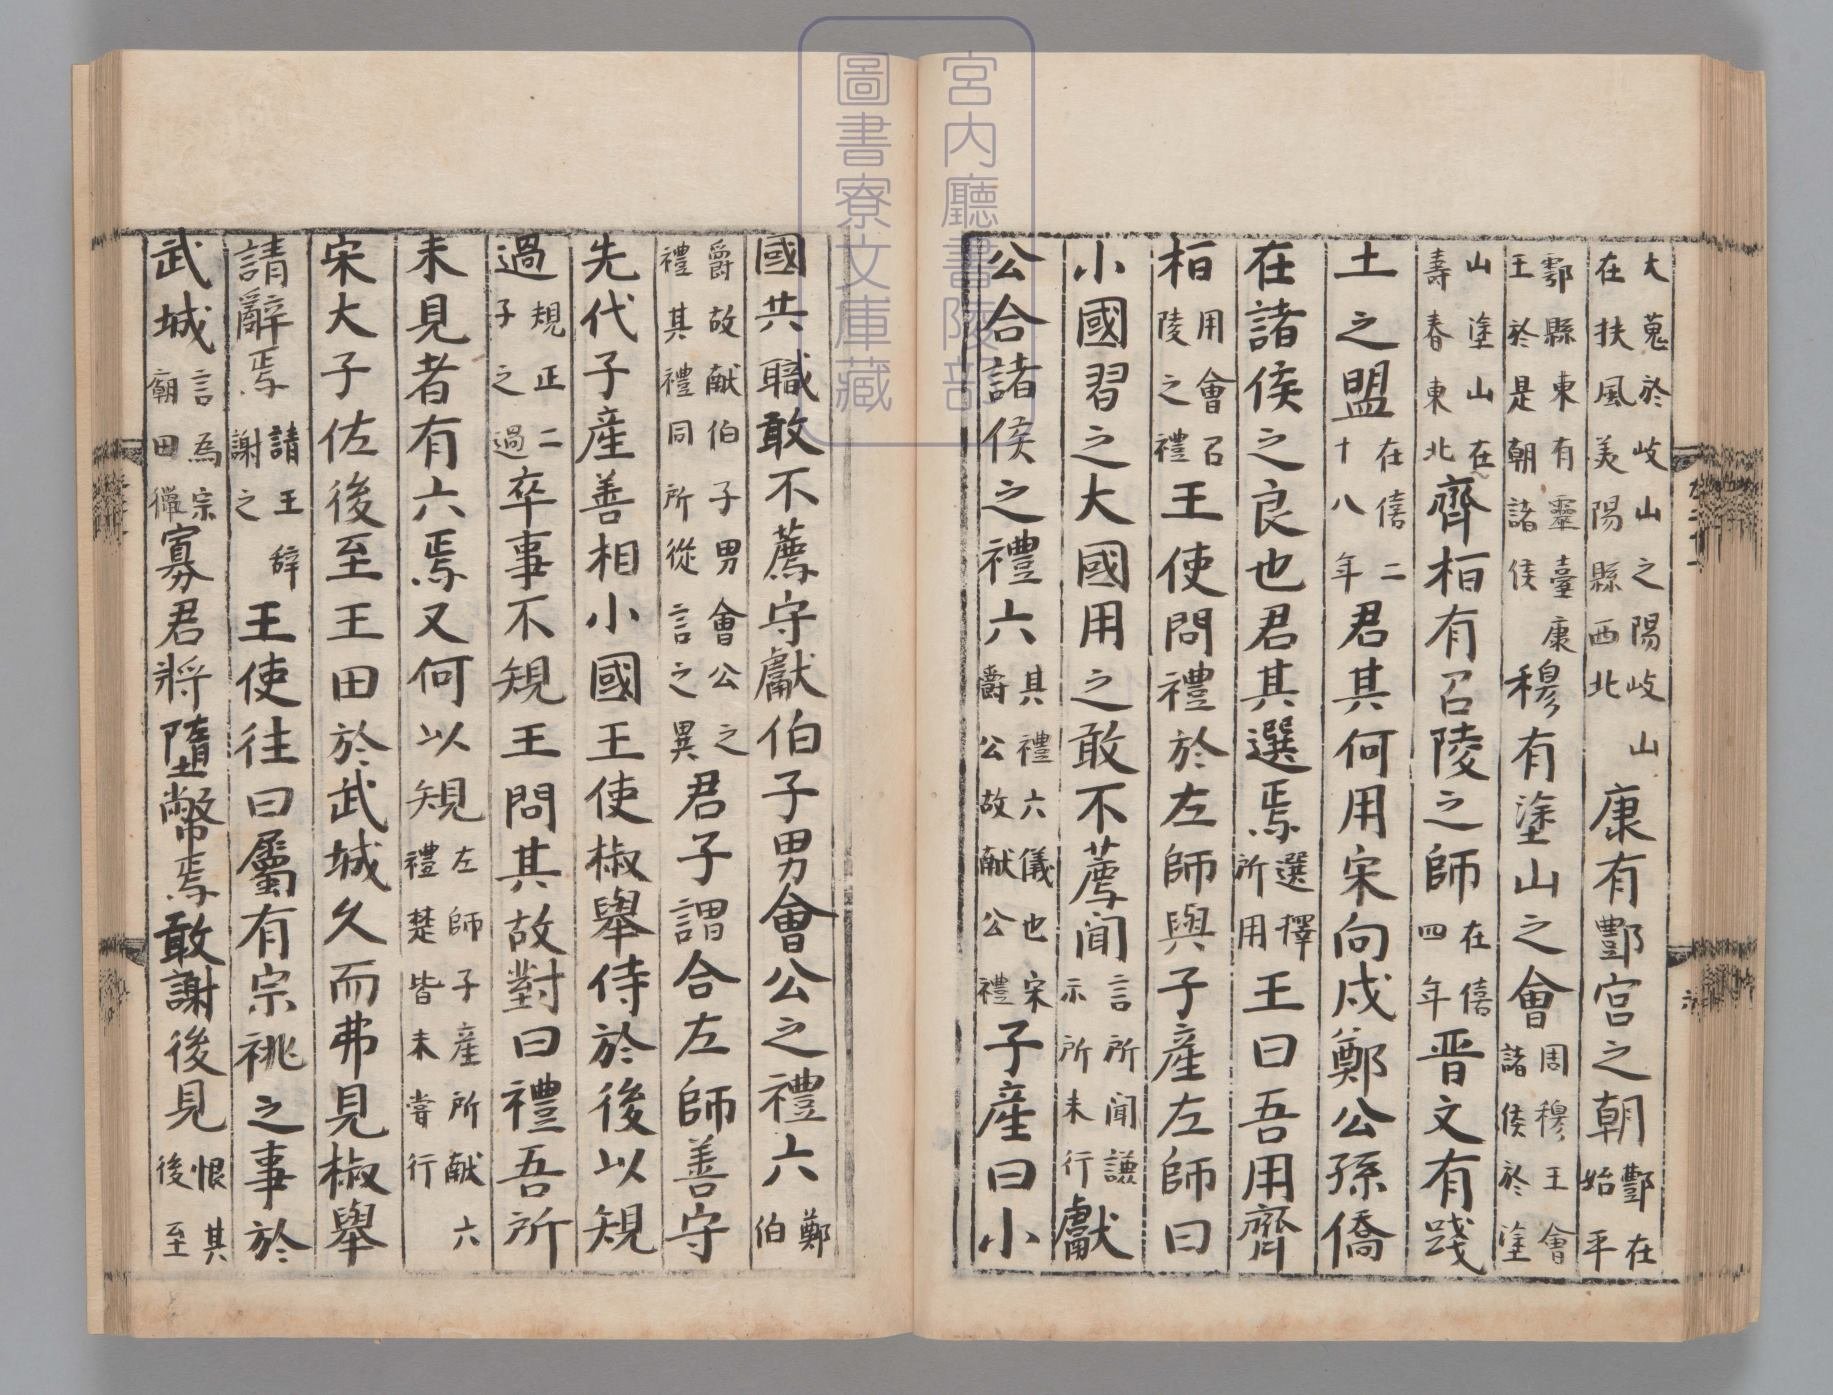 宮内廳書陵部
圖書寮文庫藏
大蒐於岐山之陽岐山在扶風美陽縣西北康有酆宮之朝酆在始平
鄠縣東有靈臺康王於是朝諸侯穆有塗山之會周穆王會諸侯於塗
山塗山在壽春東北齊桓有召陵之師在僖四年晋文有踐
土之盟在僖二十八年君其何用宋向戌鄭公孫僑
在諸侯之良也君其選焉選擇所用王曰吾用齊
桓用會召陵之禮王使問禮於左師與子產左師曰
小國習之大國用之敢不薦聞言所聞謙示所未行獻
公合諸侯之禮六其禮六儀也宋爵公故献公禮子產曰小
國共職敢不薦守獻伯子男會公之禮六鄭伯
爵故献伯子男會公之禮其禮同所從言之異君子謂合左師善守
先代子產善相小國王使椒舉侍於後以規
過規正二子之過卒事不規王問其故對曰禮吾所
未見者有六焉又何以規左師子産所献六禮楚皆未甞行
宋大子佐後至王田於武城久而弗見椒舉
請辭焉請王辞謝之王使往曰屬有宗祧之事於
武城言為宗廟田獵寡君將墮幣焉敢謝後見恨其後至